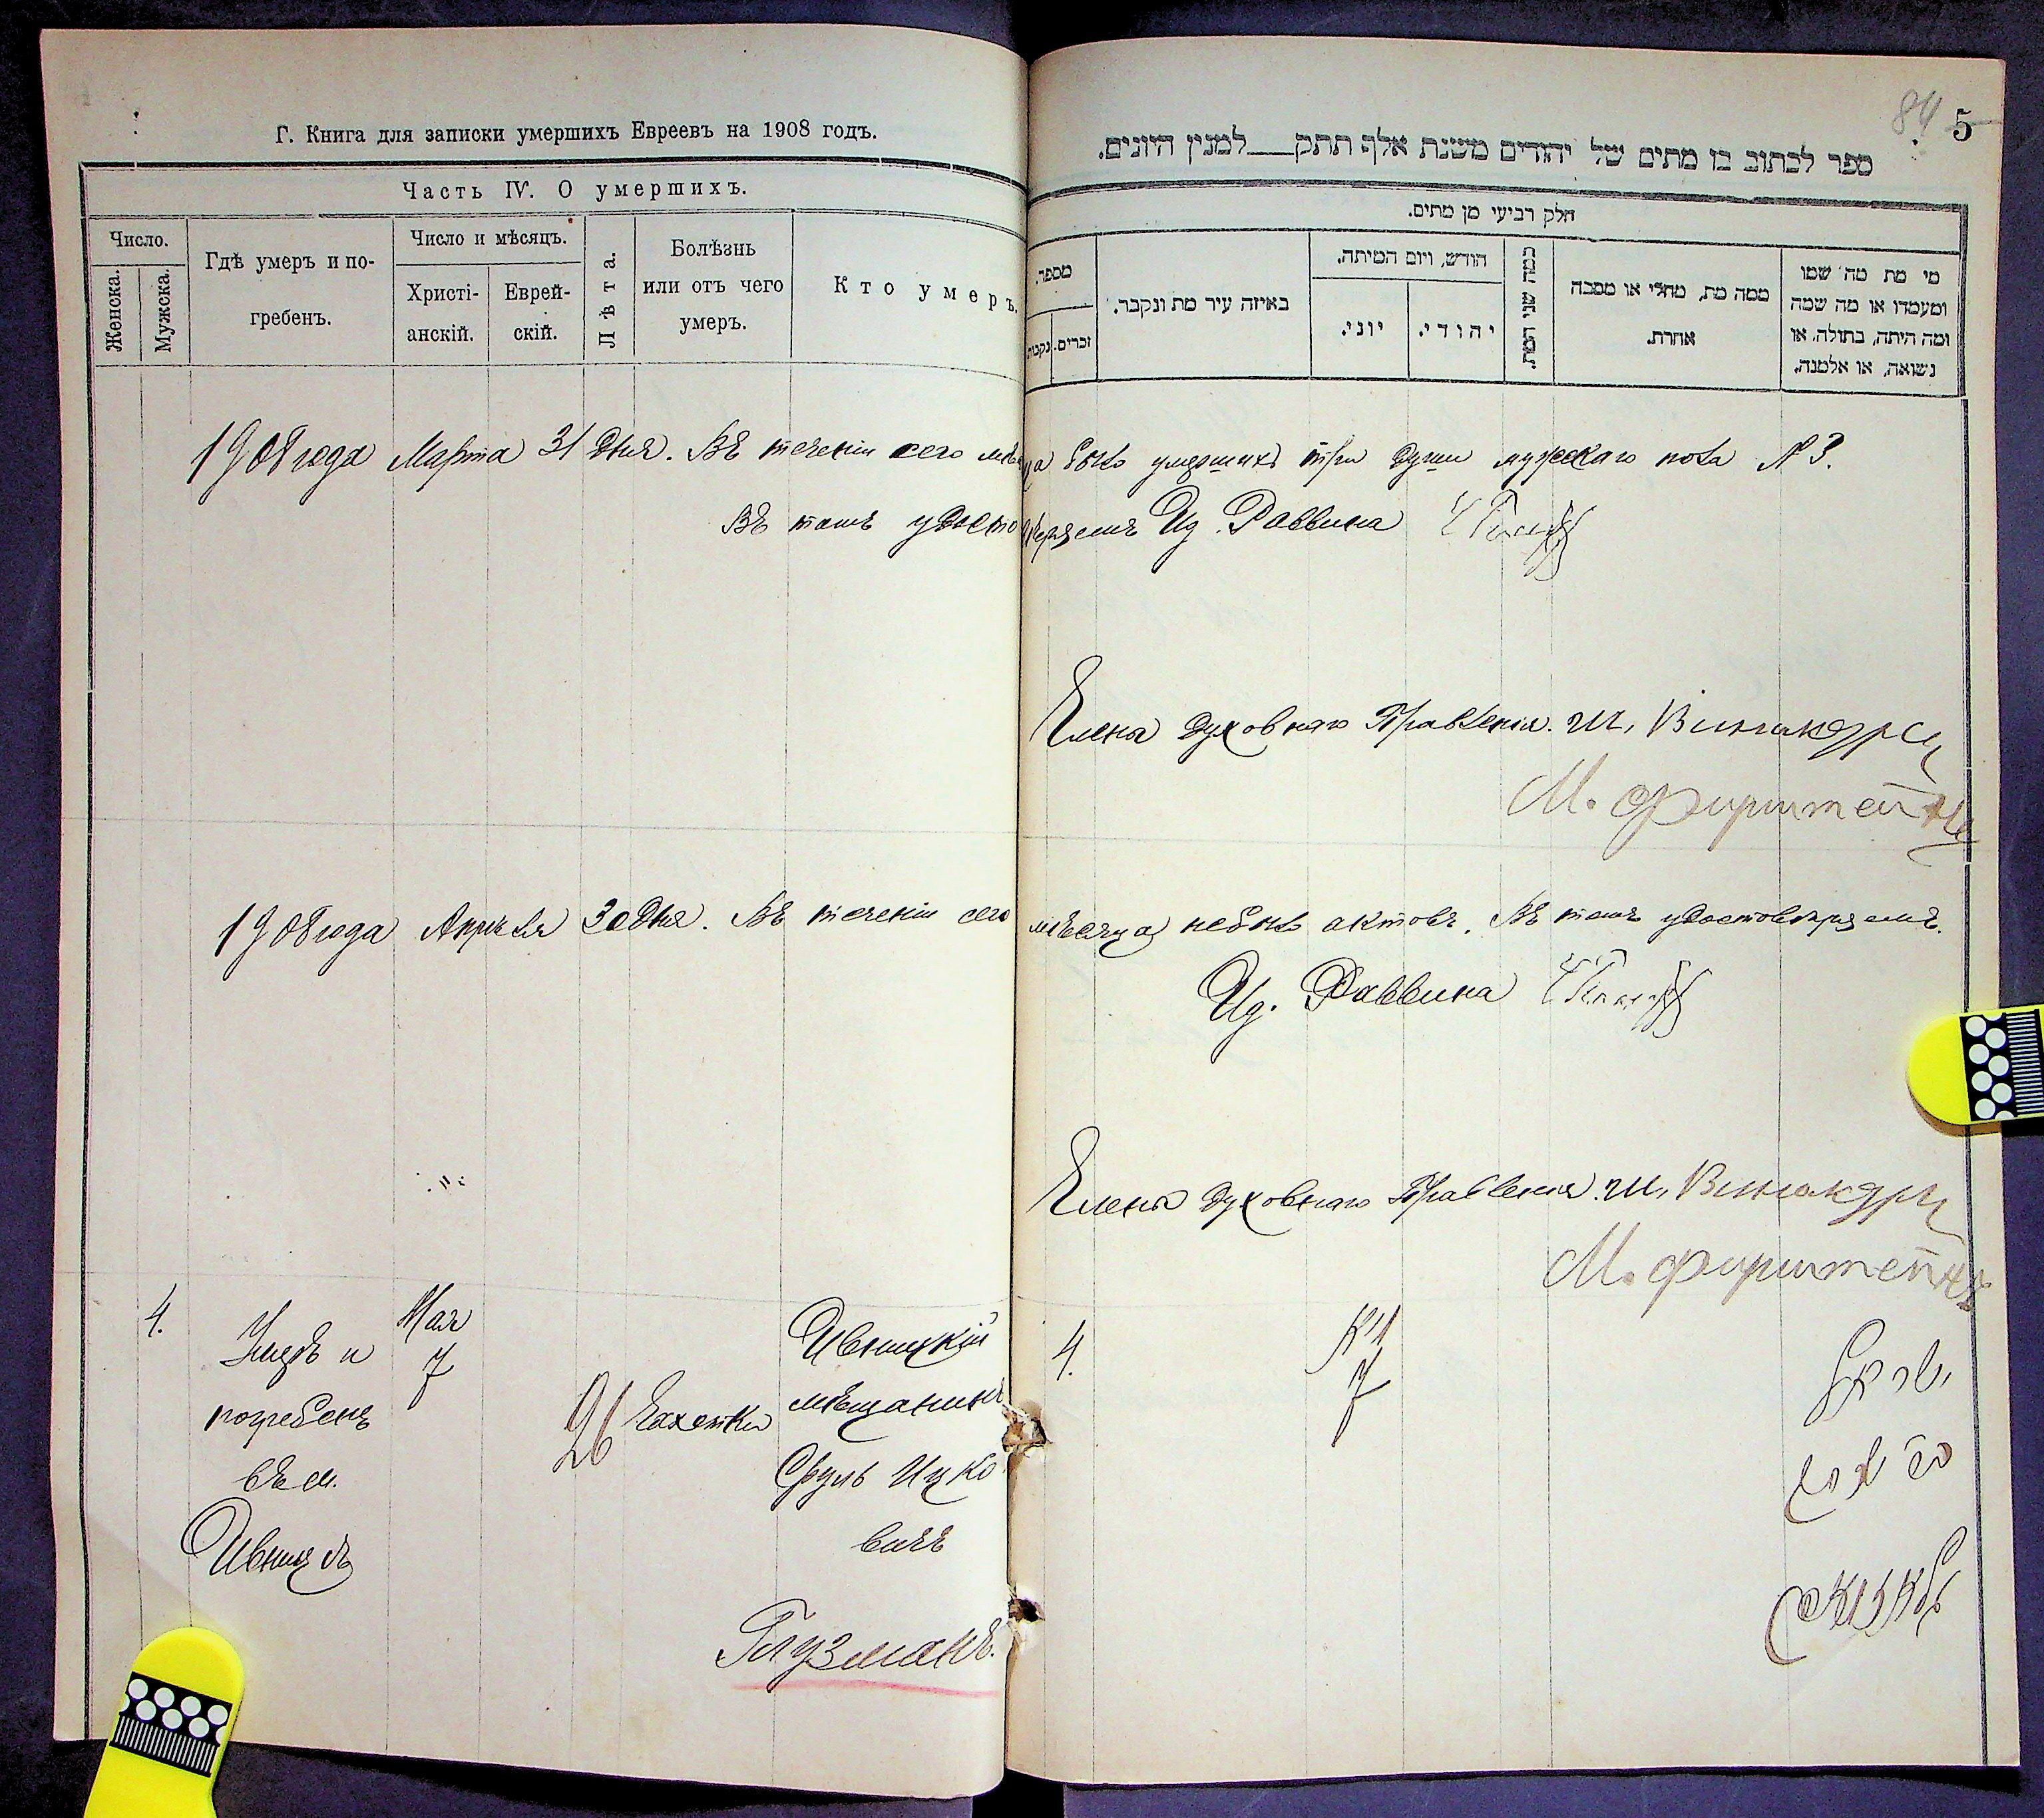 Г. Книга для записки умершихъ Евреевъ на 1908 годъ.
Часть IV. О умершихъ.
Число.
Женска.
Мужска.
Гдѣ умеръ и по-
гребенъ.
Число и мѣсяцъ.
Христі-
анскій.
Еврей-
скій.
Лѣта.
Болѣзнь
или отъ чего
умеръ.
Кто умеръ.
84 5
ספר לכתוב בו מתים של יהודים משנת אלף תתק למנין היונים.
חלק רביעי מן מתים.
מספר.
נקבות.
זכרים.
באיזה עיר מת ונקבר.
חודש, ויום המיתה.
יוני.
יהודי.
כמה שני המת.
ממה מת, מחלי או מסבה
אחרת.
מי מת מה שמו
ומעמדו או מה שמה
ומה היתה, בתולה, או
נשואה, או אלמנה.
1908 года Марта 31 дня. Въ теченіи сего мѣсяца было умершихъ три души мужскаго пола № 3.
Въ томъ удостовѣряемъ Ид. Раввина
Члены Духовнаго Правленія. Ш. Винокуръ
М. Фирштейнъ
1908 года Апрѣля 30 дня. Въ теченіи сего мѣсяца небыло актовъ. Въ томъ удостовѣряемъ.
Ид. Раввина
Члены Духовнаго Правленія. Ш. Винокуръ
М. Фирштейнъ
4.
Умеръ и
погребенъ
въ м.
Ивницѣ
Мая
7
26
Чахотки
Ивницкій
мѣщанинъ
Сруль Ицко
вичъ
Глузманъ.
4.
מאי
7
ישראל
גלוזמאן